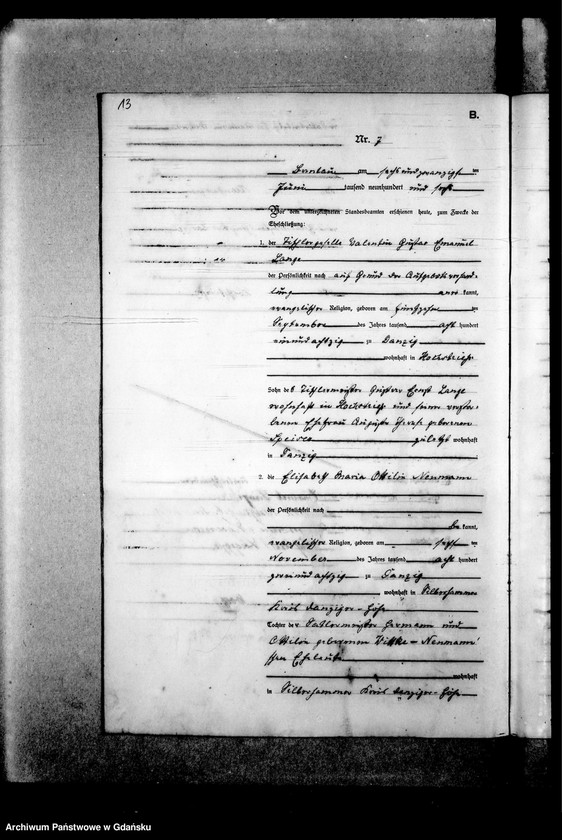 13
B.
Nr. 7
am sechsundzwanzigsten
Juni tausend neunhundert und sechs
Vor dem unterzeichneten Standesbeamten erschienen heute, zum Zwecke der
Eheschließung:
1. der Tischlergeselle Valentin Gustav Emanuel
Lange
der Persönlichkeit nach auf Grund der Aufgebotsverhand-
lung aner kannt,
evangelischer Religion, geboren am fünfzehnten
September des Jahres tausend acht hundert
einundachtzig zu Danzig
wohnhaft in Hochstrieß
Sohn des Tischlermeisters Gustav Ernst Lange
wohnhaft in Hochstrieß und seiner verstor-
benen Ehefrau Auguste Therese geborenen
zuletzt wohnhaft
in Danzig
2. die Elisabeth Maria Ottilie Neumann
der Persönlichkeit nach
be kannt,
evangelischer Religion, geboren am sechsten
November des Jahres tausend acht hundert
zweiundachtzig zu Danzig
wohnhaft in Silberhammer
Kreis Danziger-Höhe
Tochter der Sattlermeister Hermann und
Ottilie geborenen Neumann'
schen Eheleute
wohnhaft
in Silberhammer Kreis Danziger-Höhe
Archiwum Państwowe w Gdańsku